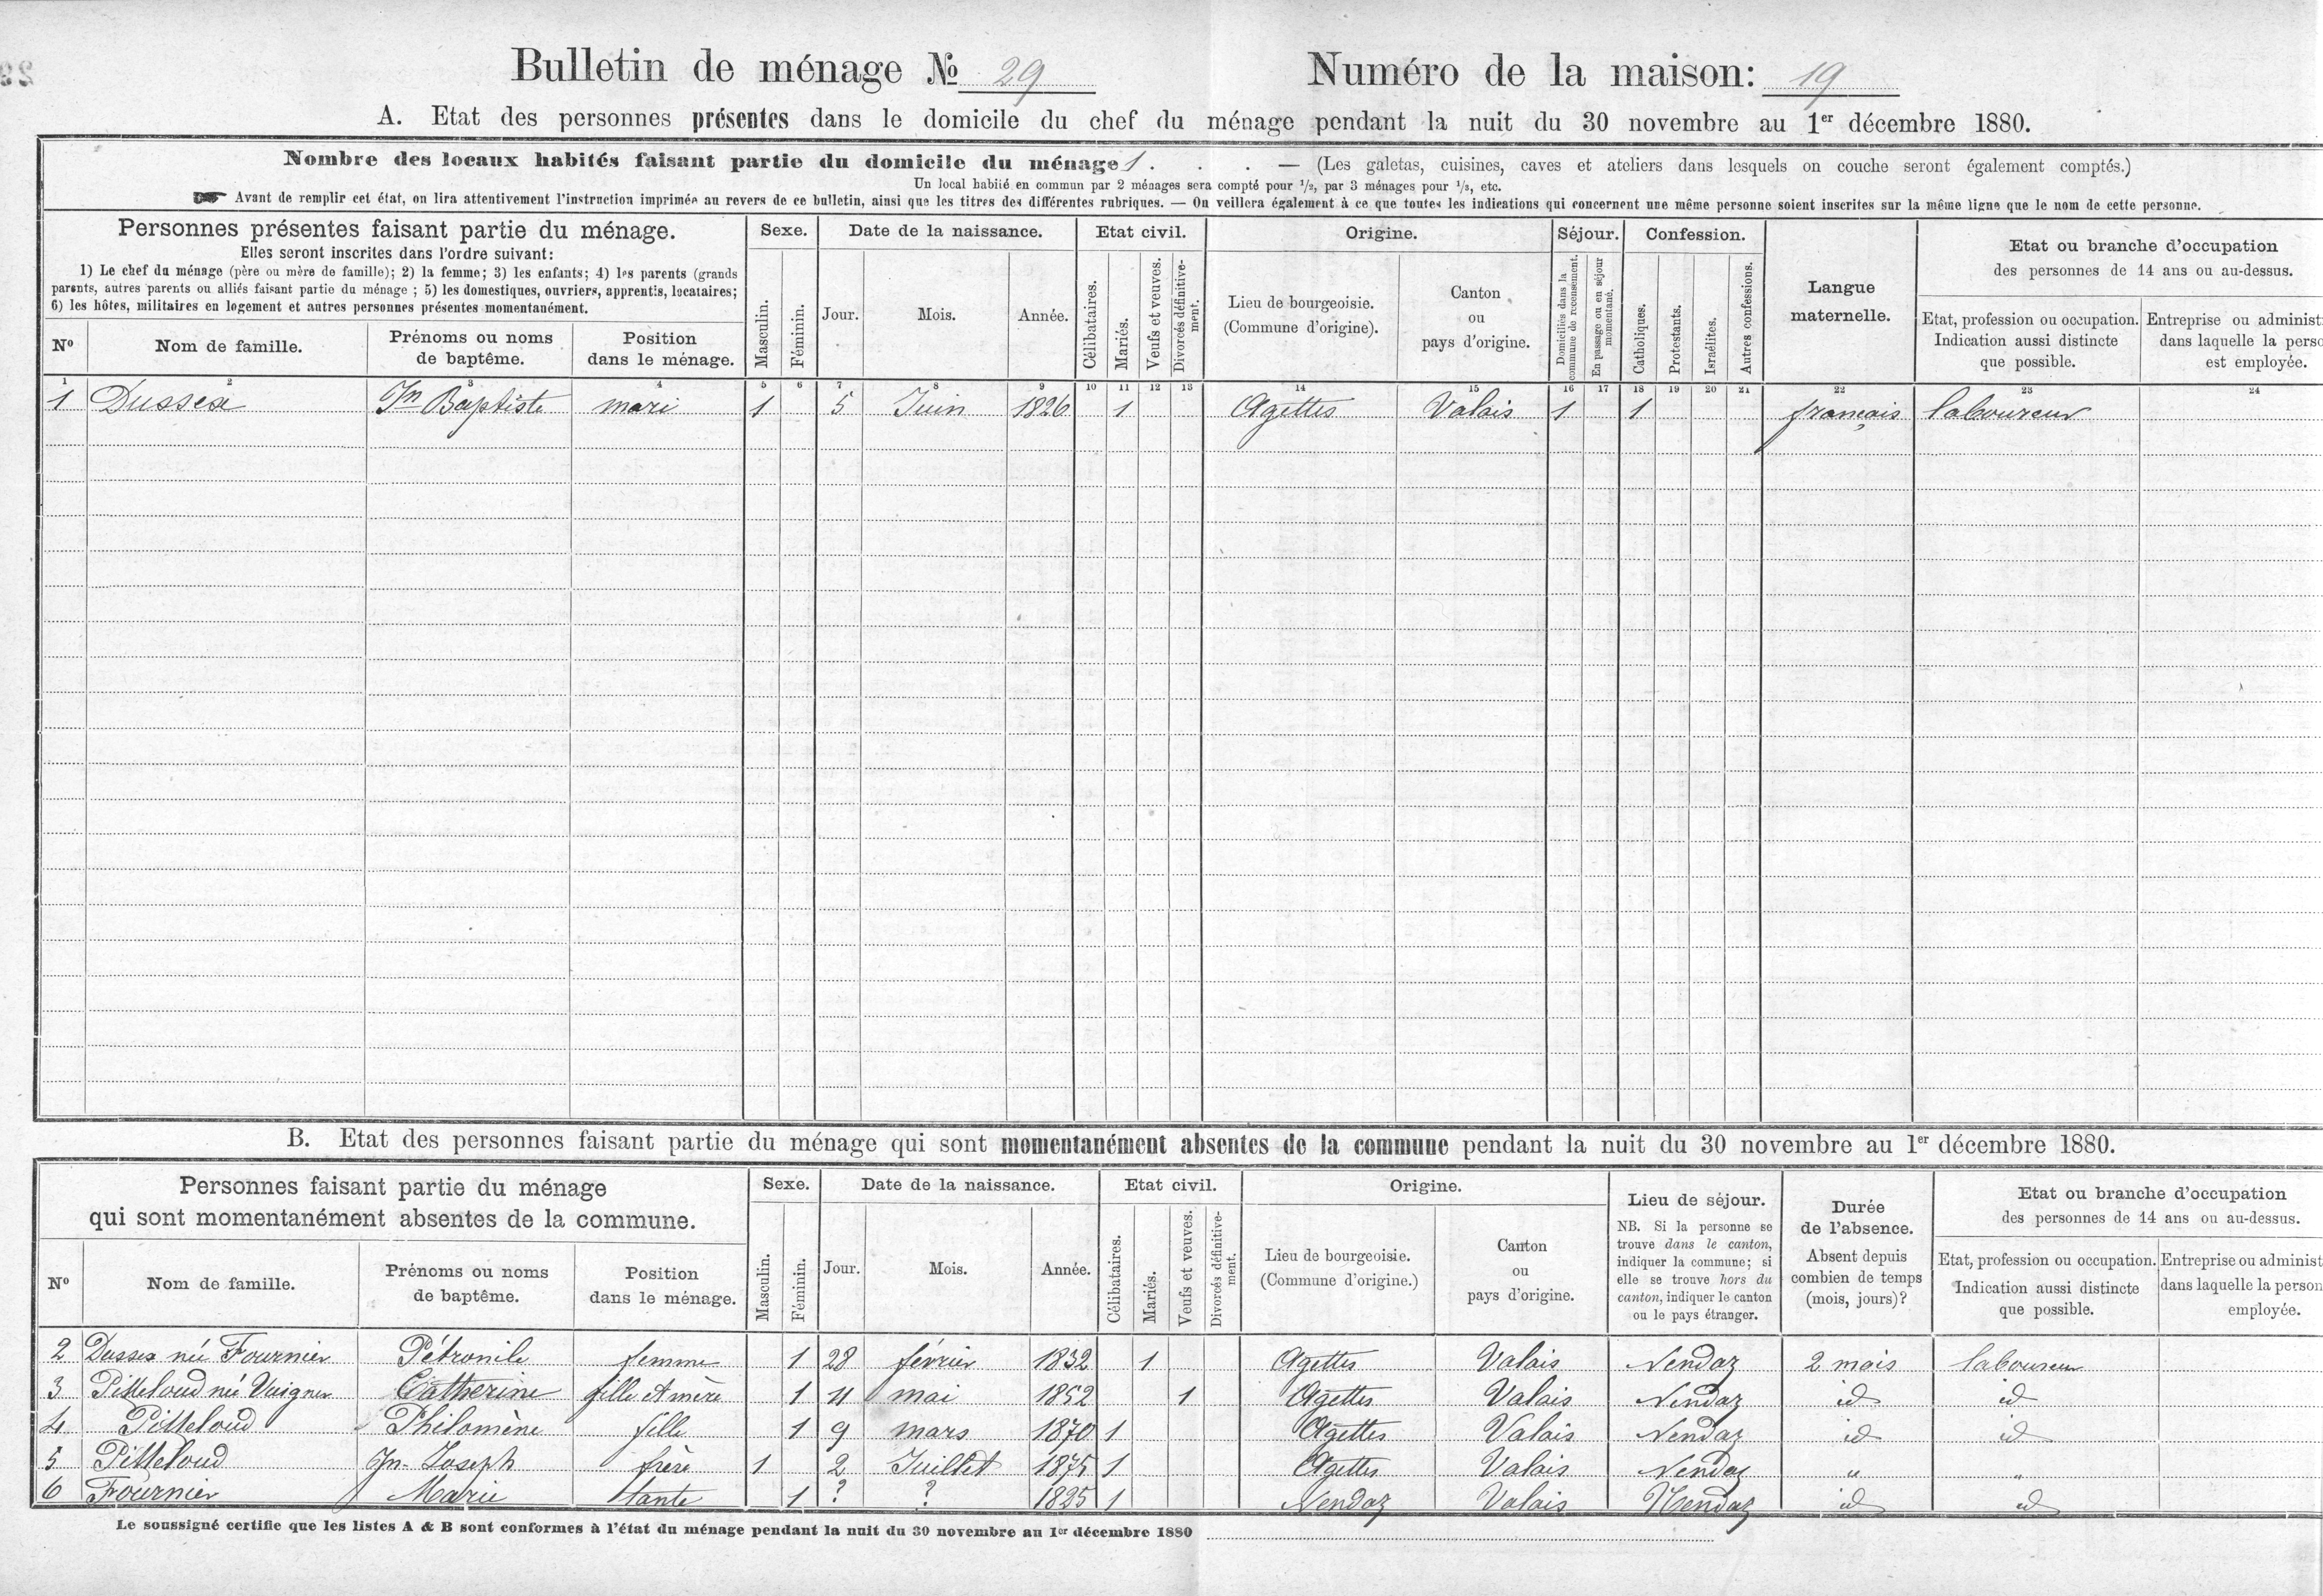 Bulletin de ménage No 29 Numéro de la maison: 19
A. Etat des personnes présentes dans le domicile du chef du ménage pendant la nuit du 30 novembre au 1er décembre 1880.
Nombre des locaux habités faisant partie du domicile du ménage 1 . . . — (Les galetas, cuisines, caves et ateliers dans lesquels on couche seront également comptés.)
Un local habité en commun par 2 ménages sera compté pour 1/2, par 3 ménages pour 1/3, etc.
Avant de remplir cet état, on lira attentivement l'instruction imprimée au revers de ce bulletin, ainsi que les titres des différentes rubriques. — On veillera également à ce que toutes les indications qui concernent une même personne soient inscrites sur la même ligne que le nom de cette personne.
Personnes présentes faisant partie du ménage.
Elles seront inscrites dans l'ordre suivant:
1) Le chef du ménage (père ou mère de famille); 2) la femme; 3) les enfants; 4) les parents (grands
parents, autres parents ou alliés faisant partie du ménage ; 5) les domestiques, ouvriers, apprentis, locataires;
6) les hôtes, militaires en logement et autres personnes présentes momentanément.
No
Nom de famille.
Prénoms ou noms
de baptême.
Position
dans le ménage.
Sexe.
Masculin.
Féminin.
Date de la naissance.
Jour.
Mois.
Année.
Etat civil.
Célibataires.
Mariés.
Veufs et veuves.
Divorcés définitive-
ment.
Origine.
Lieu de bourgeoisie.
(Commune d'origine).
Canton
ou
pays d'origine.
Séjour.
Domiciliés dans la
commune de recensement.
En passage ou en séjour
momentané.
Confession.
Catholiques.
Protestants.
Israélites.
Autres confessions.
Langue
maternelle.
Etat ou branche d'occupation
des personnes de 14 ans ou au-dessus.
Etat, profession ou occupation.
Indication aussi distincte
que possible.
Entreprise ou administ
dans laquelle la perso
est employée.
1 2 3 4 5 6 7 8 9 10 11 12 13 14 15 16 17 18 19 20 21 22 23 24
1 Dussex Jn Baptiste mari 1 5 Juin 1826 1 Agettes Valais 1 1 français laboureur
B. Etat des personnes faisant partie du ménage qui sont momentanément absentes de la commune pendant la nuit du 30 novembre au 1er décembre 1880.
Personnes faisant partie du ménage
qui sont momentanément absentes de la commune.
No
Nom de famille.
Prénoms ou noms
de baptême.
Position
dans le ménage.
Sexe.
Masculin.
Féminin.
Date de la naissance.
Jour.
Mois.
Année.
Etat civil.
Célibataires.
Mariés.
Veufs et veuves.
Divorcés définitive-
ment.
Origine.
Lieu de bourgeoisie.
(Commune d'origine.)
Canton
ou
pays d'origine.
Lieu de séjour.
NB. Si la personne se
trouve dans le canton,
indiquer la commune; si
elle se trouve hors du
canton, indiquer le canton
ou le pays étranger.
Durée
de l'absence.
Absent depuis
combien de temps
(mois, jours)?
Etat ou branche d'occupation
des personnes de 14 ans ou au-dessus.
Etat, profession ou occupation.
Indication aussi distincte
que possible.
Entreprise ou administ
dans laquelle la person
employée.
2 Dussex née Fournier Pétronile femme 1 28 février 1832 1 Agettes Valais Nendaz 2 mois laboureur
3 Pitteloud née Catherine fille et mère 1 11 mai 1852 1 Agettes Valais Nendaz id id
4 Pitteloud Philomène fille 1 9 mars 1870 1 Agettes Valais Nendaz id id
5 Pitteloud Jn-Joseph frère 1 2 Juillet 1875 1 Agettes Valais Nendaz " "
6 Fournier Marie tante 1 ? ? 1825 1 Nendaz Valais Nendaz id id
Le soussigné certifie que les listes A & B sont conformes à l'état du ménage pendant la nuit du 30 novembre au 1er décembre 1880